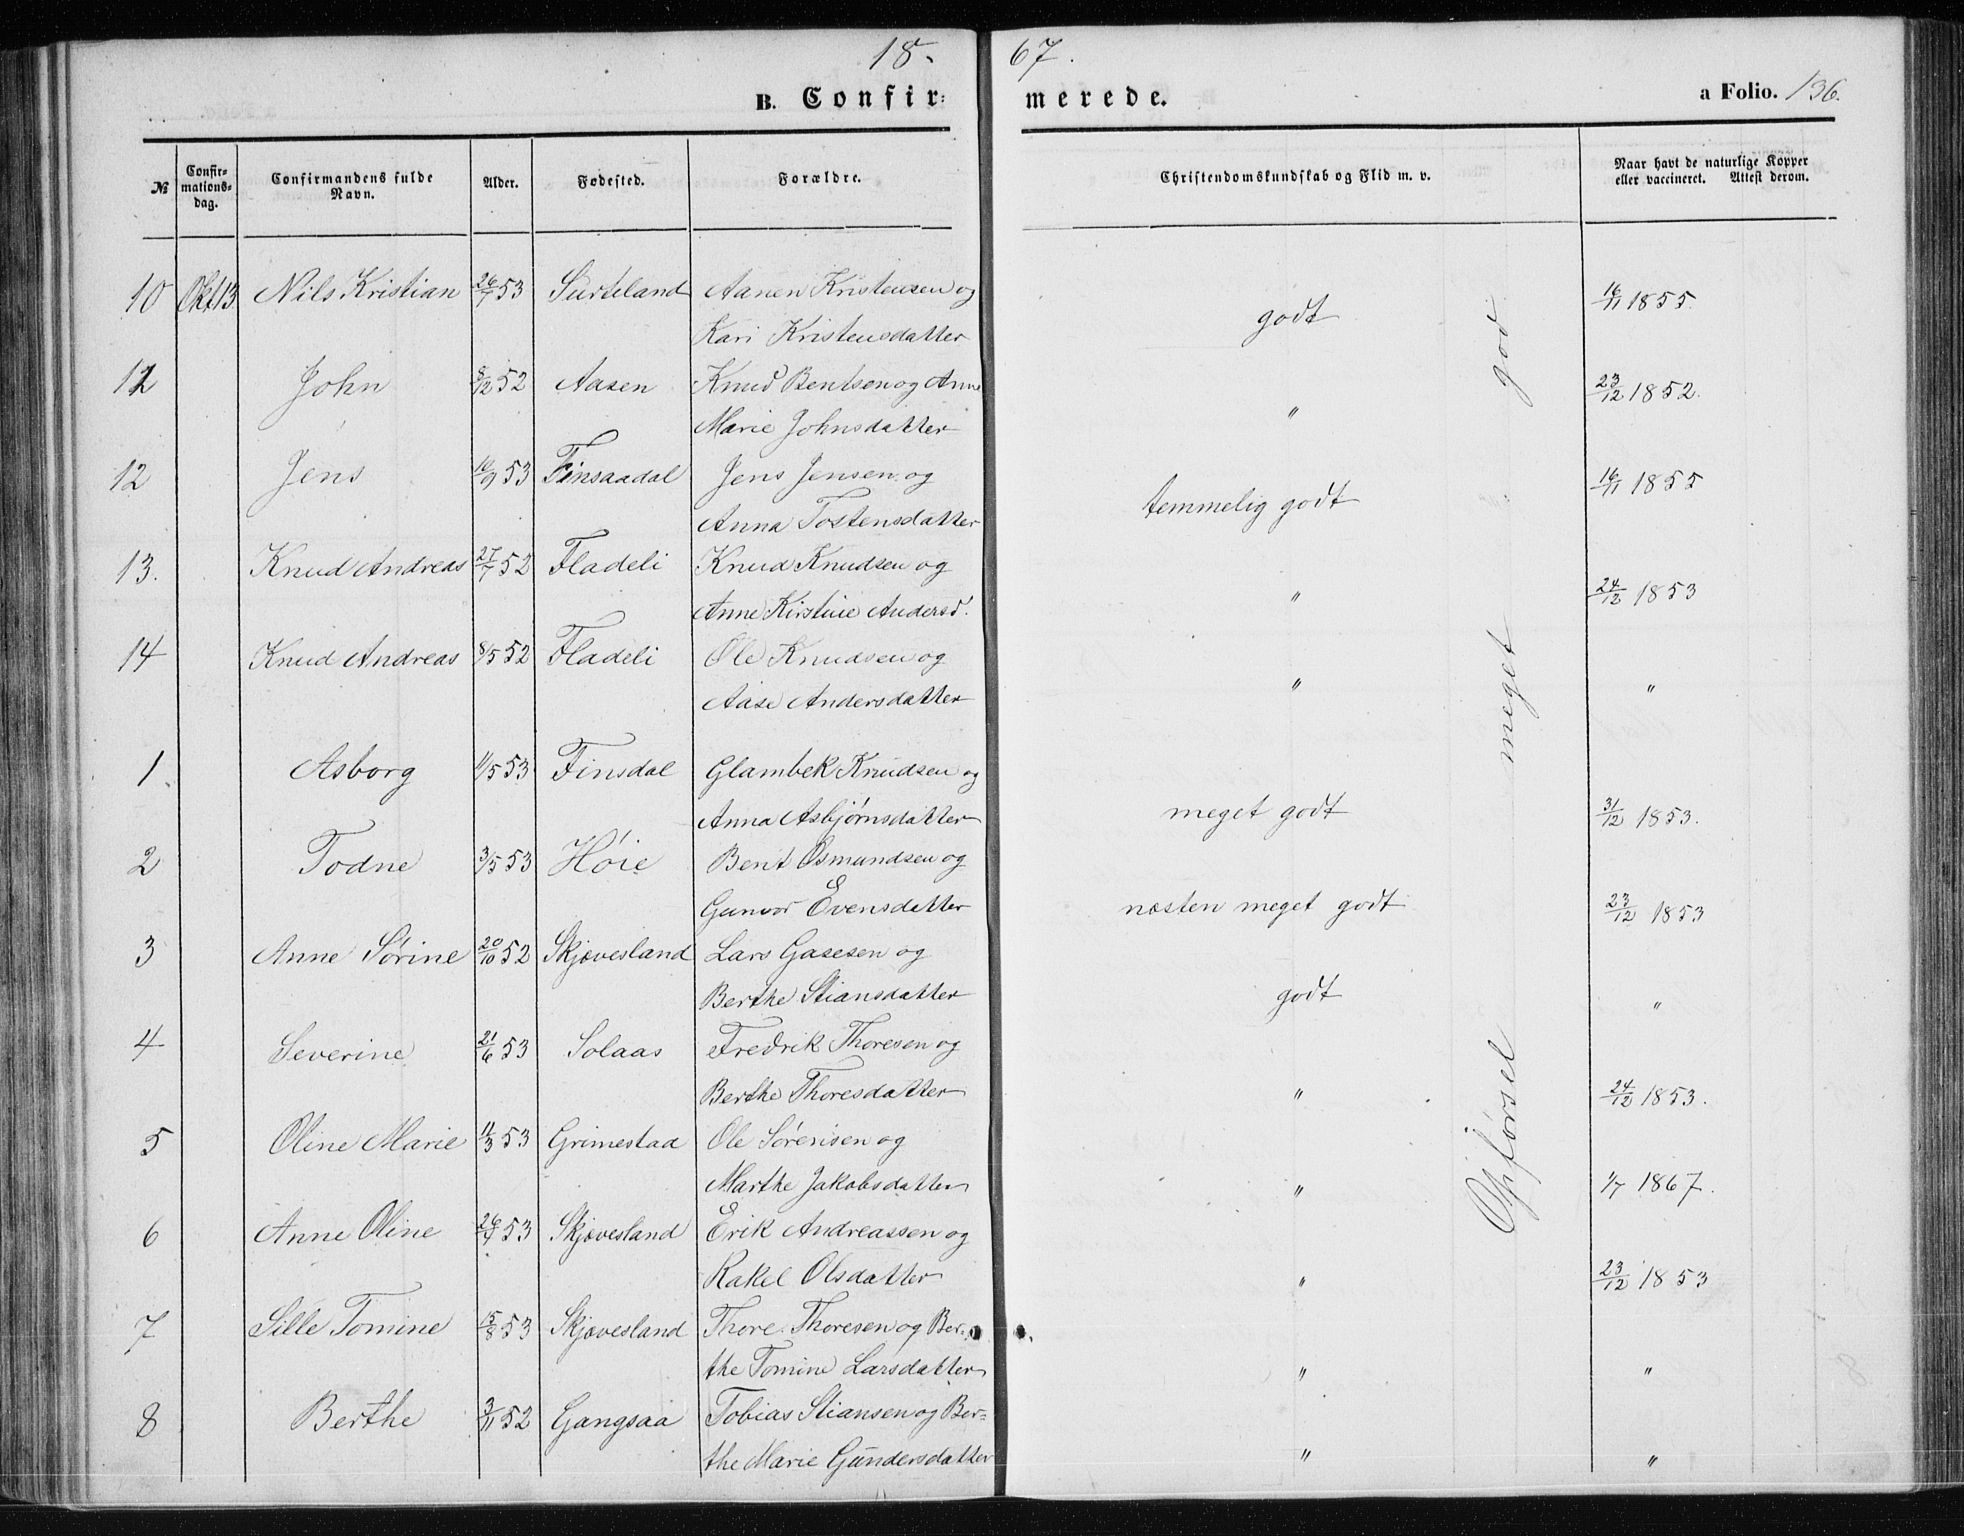 18. 67.
B. Confir: merede. a Folio. 136.
№ Confir-mations-dag. Confirmandens fulde Navn. Alder. Fødested. Forældre. Christendomskundskab og Flid m. v. Naar havt de naturlige Kopper eller vaccineret. Attest derom.
10 Okt 13 Nils Kristian 26/7 53 Surteland Aanen Kristensen og godt 16/11 1855.
Kari Kristensdatter
12 John 8/12 52 Aasen Knud Bentsen og Anne " 23/12 1852.
Marie Johnsdatter
12 Jens 16/9 53 Finsaadal Jens Jensen og temmelig godt 16/11 1855
Anna Tostensdatter
13. Knud Andreas 27/7 52 Fladeli Knud Knudsen og " 24/12 1853
Anne Kirstine Andersd.
14 Knud Andreas 8/5 52 Fladeli Ole Knudsen og " "
Aase Andersdatter
1. Asborg 11/5 53 Finsdal Glambek Knudsen og meget godt 31/12 1853.
Anna Asbjørnsdatter
2 Todne 3/5 53 Høie Berit Osmundsen og næsten meget godt 23/12 1853
Gunvor Evensdatter
3 Anne Sørine 20/10 52 Skjævesland Lars Gasesen og godt "
Berthe Stiansdatter
4 Severine 21/6 53 Solaas Fredrik Thoresen og " 24/12 1853.
Berthe Thoresdatter
5 Oline Marie 11/3 53 Grimestad Ole Sørensen og " 1/7 1867.
Marthe Jakobsdatter
6 Anne Oline 26/9 53 Skjævesland Erik Andreassen og " 23/12 1853
Rakel Olsdatter
7 Sille Tomine 15/8 53 Skjævesland Thore Thoresen og Ber- " "
the Tomine Larsdatter
8 Berthe 3/11 52 Gangsaa Tobias Stiansen og Ber= " "
the Marie Gundersdatter
Opførsel meget god